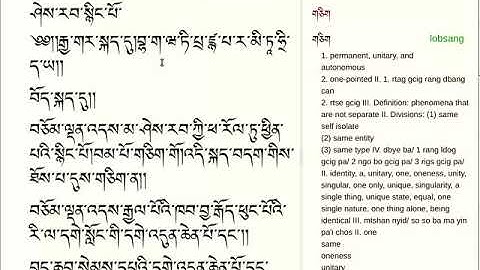 ཤེས་རབ་སྙིང་པོ་
༄༅།།རྒྱ་གར་སྐད་དུ།བྷ་ག་ཝ་ཏི་པྲ་ཛྙཱ་པ་ར་མི་ཏཱ་ཧྲི་
ད་ཡ།།
བོད་སྐད་དུ།།
བཅོམ་ལྡན་འདས་མ་ཤེས་རབ་ཀྱི་ཕ་རོལ་ཏུ་ཕྱིན་
པའི་སྙིང་པོ།བམ་པོ་གཅིག་གོ།འདི་སྐད་བདག་གིས་
ཐོས་པ་དུས་གཅིག་ན།།
བཅོམ་ལྡན་འདས་རྒྱལ་པོའི་ཁབ་བྱ་རྒོད་ཕུང་པོའི་
རི་ལ་དགེ་སློང་གི་དགེ་འདུན་ཆེན་པོ་དང་།
བྱང་ཆུབ་སེམས་དཔའི་དགེ་འདུན་ཆེན་པོ་དང་
གཅིག
གཅིག lobsang
1. permanent, unitary, and
autonomous
2. one-pointed II. 1. rtag gcig rang dbang
can
2. rtse gcig III. Definition: phenomena that
are not separate II. Divisions: (1) same
self isolate
(2) same entity
(3) same type IV. dbye ba/ 1 rang ldog
gcig pa/ 2 ngo bo gcig pa/ 3 rigs gcig pa/
II. identity, a, unitary, one, oneness, unity,
singular, one only, unique, singularity, a
single thing, unique state, equal, one
single nature, one thing alone, being
identical III. mtshan nyid/ so so ba ma yin
pa'i chos II. one
same
oneness
unitary